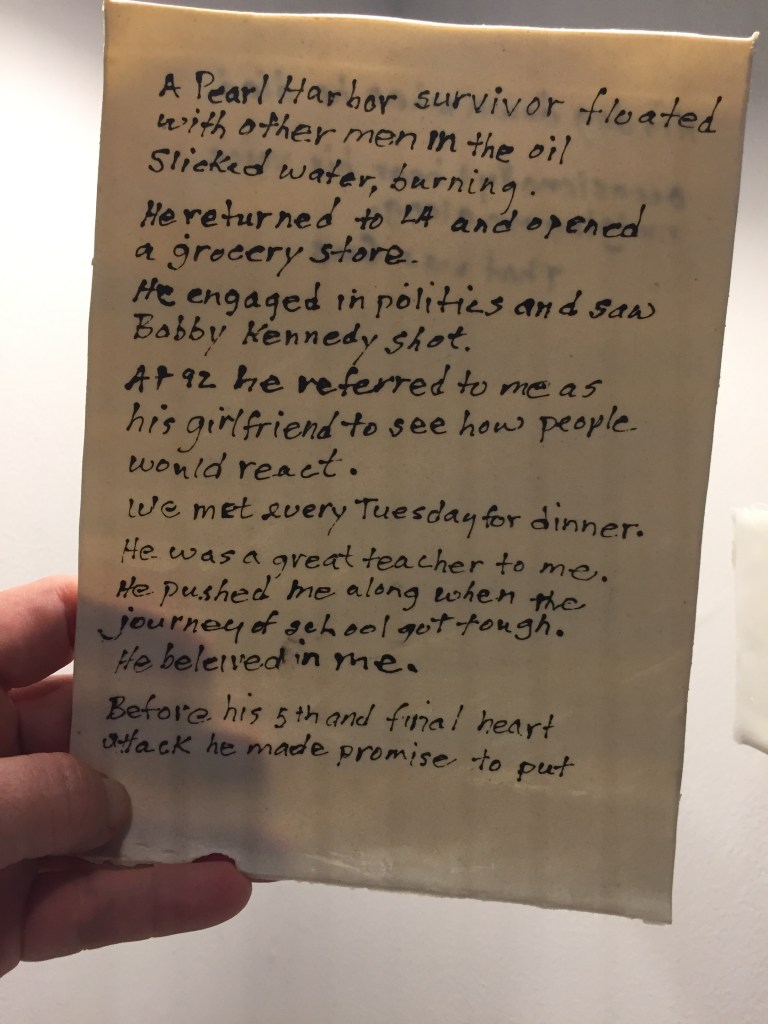 A Pearl Harbor survivor floated
with other men in the oil
slicked water, burning.
He returned to LA and opened
a grocery store.
He engaged in politics and saw
Bobby Kennedy shot.
At 92 he referred to me as
his girlfriend to see how people
would react.
We met every Tuesday for dinner.
He was a great teacher to me.
He pushed me along when the
journey of school got tough.
He beleived in me.
Before his 5th and final heart
attack he made promise to put